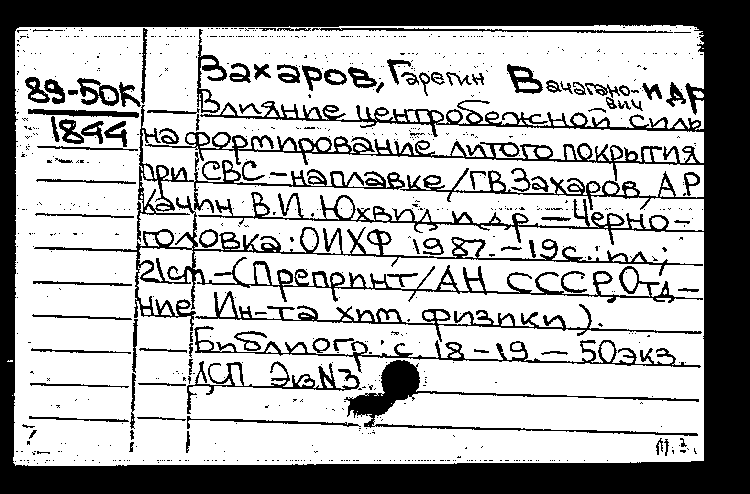 89-50К
1844
Захаров, Гарегин Вачагано-
вич и др
Влияние центробежной силы
на формирование литого покрытия
при СВС-наплавке/Г.В.Захаров, А.Р
Качин, В.И. Юхвид и др – Черно-
головка: ОИХФ, 1987. – 19с.: ил.;
21см. – (Препринт/АН СССР, Отд-
ние Ин-та хим. физики).
Библиогр: с. 18-19. – 50экз.
ДСП Экз№3